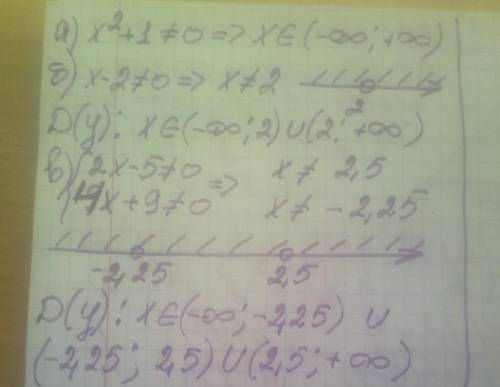 а) x²+1≠0=> X∈(-∞; +∞)
б) x-2≠0=> x≠2
2
D(y): x∈(-∞; 2)∪(2; +∞)
в) {2x-5≠0 => x≠ 2,5
{4x+9≠0 x≠ -2,25
-2,25 2,5
D(y): x∈(-∞; -2,25) ∪
(-2,25; 2,5)∪(2,5; +∞)